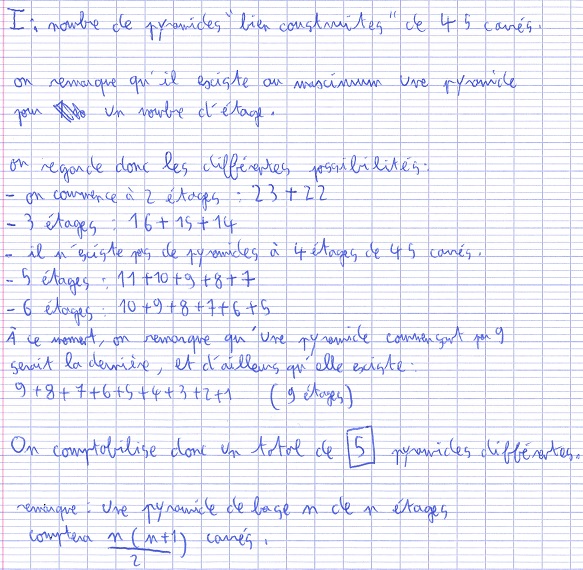 I : nombre de pyramides "bien construites" de 45 carrés.
on remarque qu'il existe au maximum une pyramide
pour un nombre d'étage.
on regarde donc les différentes possibilités :
- on commence à 2 étages : 23+22
- 3 étages : 16+15+14
- il n'existe pas de pyramides à 4 étages de 45 carrés.
- 5 étages : 11+10+9+8+7
- 6 étages : 10+9+8+7+6+5
À ce moment, on remarque qu'une pyramide commençant par 9
serait la dernière, et d'ailleurs qu'elle existe :
9+8+7+6+5+4+3+2+1 (9 étages)
On comptabilise donc un total de 5 pyramides différentes.
remarque : une pyramide de base n de n étages
comptera n(n+1)/2 carrés.